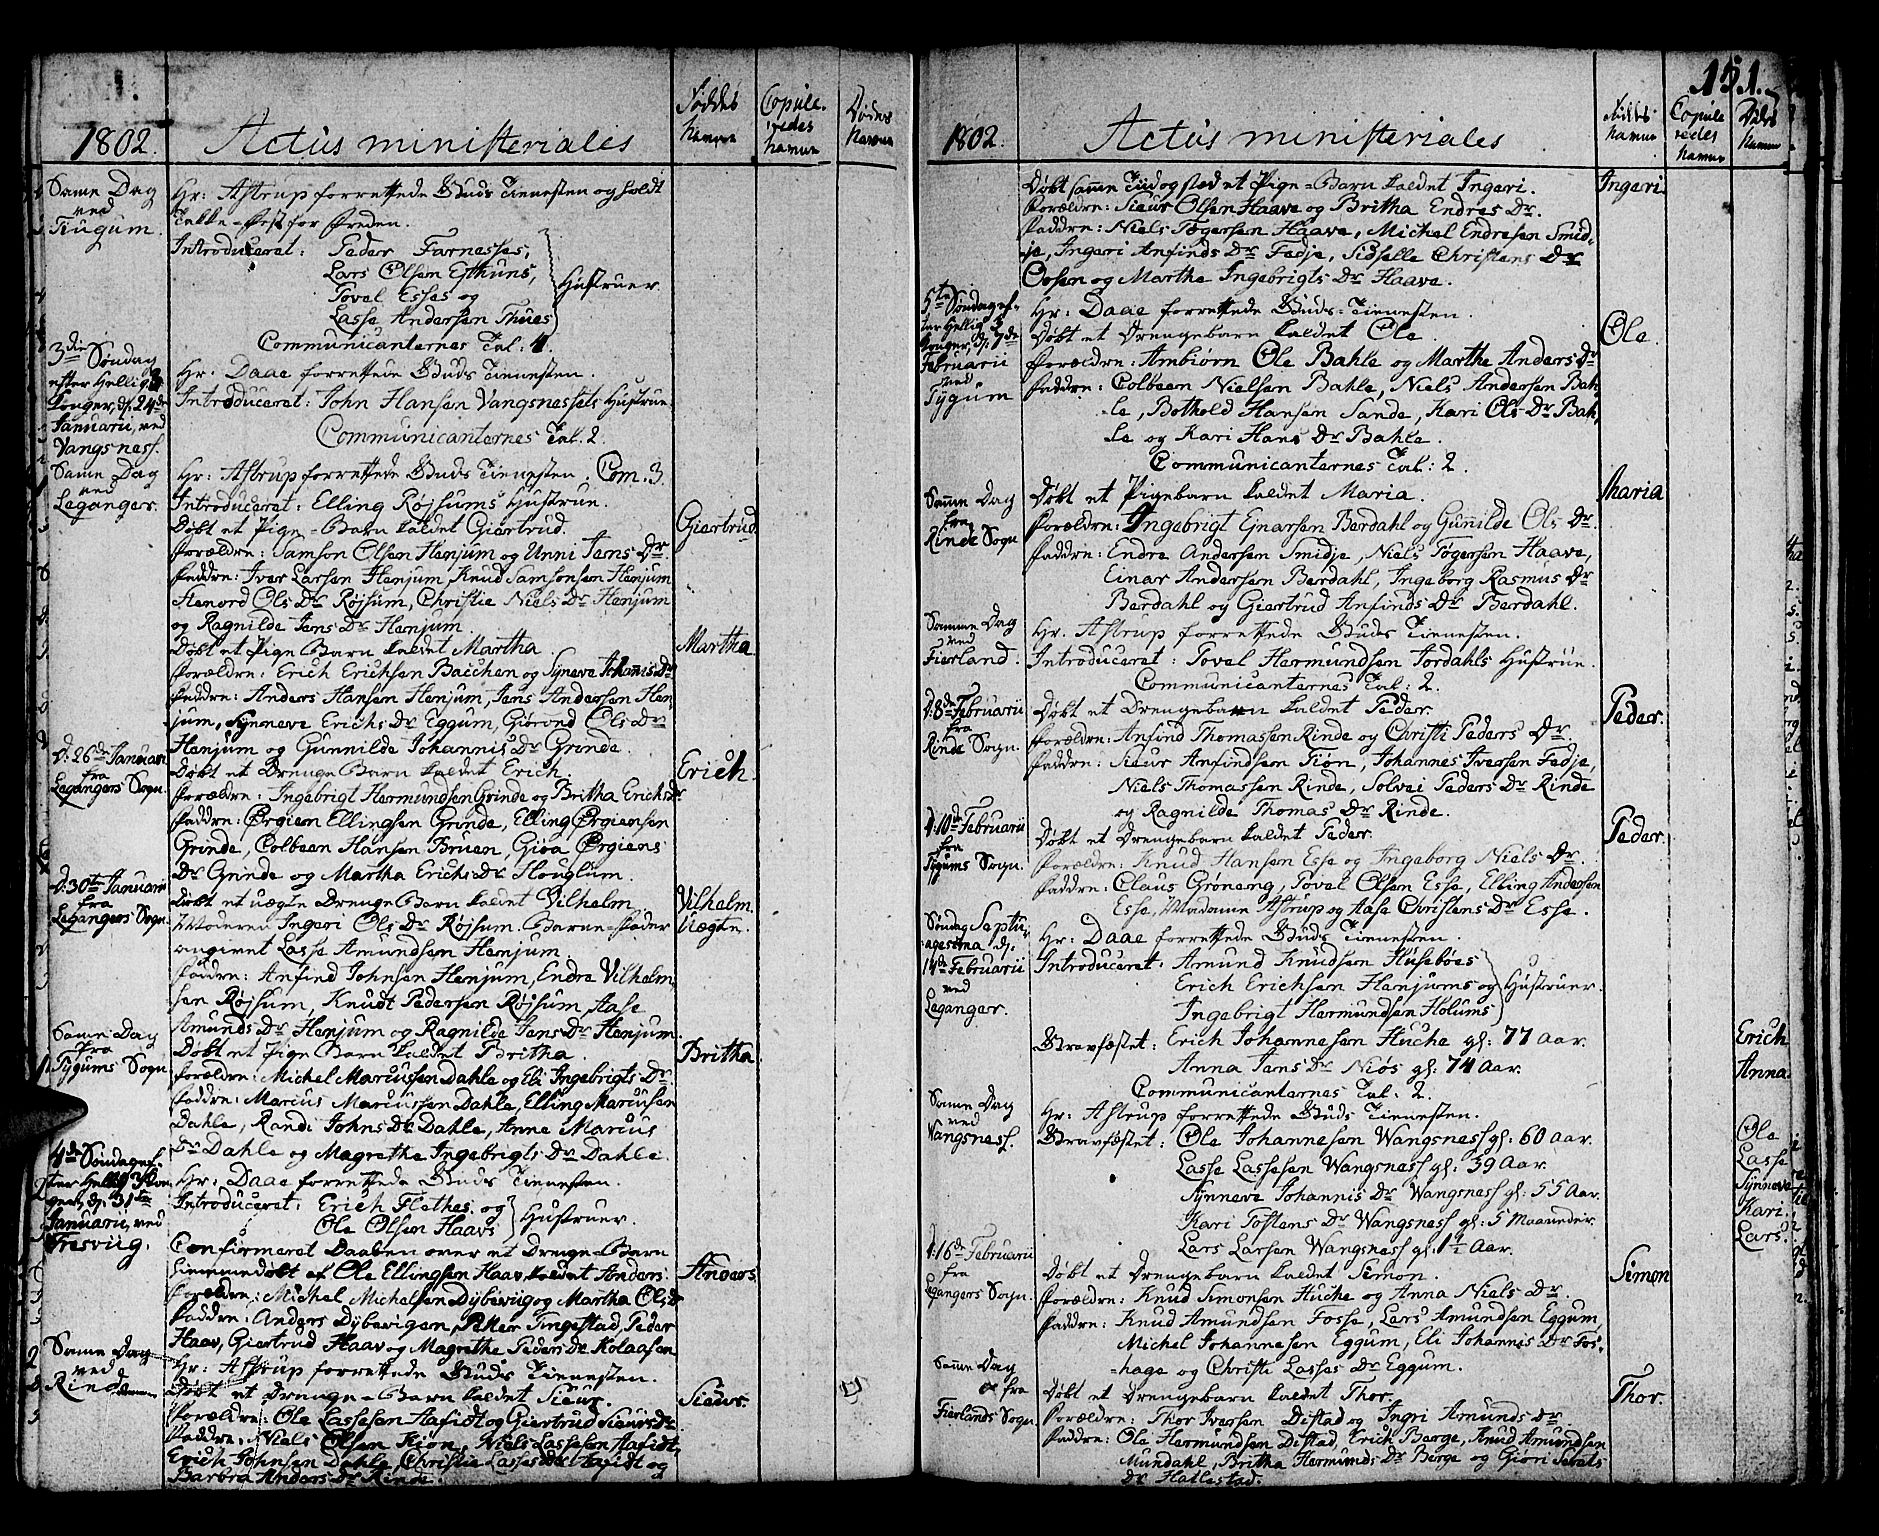 1802.
Actus ministeriales
Føddes Namne
Copuleredes Namne
Dødes Namne
Same Dag ved Tiugum.
Hr: Astrup forrettede Guds Tienesten og holdt
Takke-Fest for Freden.
Introduceret: Peder Farnesses,
Lars Olsen Esthuns,
Tovel Esses og
Lasse Andersen Thues
Hustruer
Communicanternes Tal: 4.
3die Søndag efter Hellig 3 Konger, d. 24de Januarii, ved Vangsness.
Hr: Daae forrettede Guds Tienesten.
Introduceret: John Hansen Vangsnessets Hustrue
Communicanternes Tal: 2.
Same Dag ved Leganger.
Hr: Astrup forrettede Guds Tienesten. Com. 3.
Introduceret: Elling Røjsums Hustrue.
Døbt et Pige-Barn kaldet Giertrud.
Giertrud
Forældre: Samson Olsen Henjum og Unni Jens Dr
Faddre: Iver Larsen Henjum, Knud Samsonsen Henjum
Henord Ols Dr Røjsum, Christie Niels Dr Henjum
og Ragnilde Jens Dr Henjum.
Døbt et Pige Barn kaldet Martha.
Martha
Forældre: Erich Erichsen Bacchen og Synneve Johannis Dr
Faddre: Anders Hansen Henjum, Jens Andersen Hen
jum, Synneve Erichs Dr Eggum, Giørond Ols Dr
Henjum og Gunnilde Johannis Dr Grinde.
D: 26de Januarii fra Legangers Sogn.
Døbt et Drenge Barn kaldet Erich.
Erich
Forældre: Ingebrigt Hermundsen Grinde og Britha Erichs Dr
Faddre: Ørgien Ellingsen Grinde, Elling Ørgiensen
Grinde, Colbeen Hansen Bruen, Gioa Ørgiens
Dr Grinde og Martha Erichs Dr Houglum.
D: 30te Januarii fra Legangers Sogn.
Døbt et uægte Drenge Barn kaldet Vilhelm
Vilhelm. Uægte.
Moderen Ingeri Ols Dr Røjsum. Barne-Fader
angivet Lasse Amundsen Henjum
Faddre: Anfind Johnsen Henjum, Endre Vilhelm
sen Røjsum, Knudt Pedersen Røjsum, Aase
Amunds Dr Henjum og Ragnilde Jens Dr Henjum.
Same Dag fra Tygums Sogn
Døbt et Pige Barn kaldet Britha.
Britha
Forældre: Michel Marcussen Dahle og Eli Ingebrigts Dr
Faddre: Marcus Marcussen Dahle, Elling Marcusen
Dahle, Randi Johns Dr Dahle, Anne Marcus
Dr Dahle og Magrethe Ingebrigts Dr Dahle.
4de Søndag efter Hellig 3 Konger, d. 31te Januarii, ved Fresviig.
Hr: Daae forrettede Guds Tienesten.
Introduceret: Erich Flethes og
Ole Olsen Haavs
Hustruer.
Confirmeret Daaben over et Drenge-Barn
hiemmedøbt af Ole Ellingsen Haav, kaldet Anders
Anders
Forældre: Michel Michelsen Dybeviig og Martha Ols Dr
Faddre: Anders Dybevigen, Peter Tingestad, Peder
Haav, Giertrud Haav og Magrethe Peders Dr Kolaasen
Same Dag ved Rind
Hr: Astrup forrettede Guds Tienesten.
Døbt et Drenge-Barn kaldet Sieur.
Sieur.
Forældre: Ole Lassesen Aafidt og Giertrud Sieurs Dr
Faddre: Niels Olsen Kion, Niels Lassesen Aafidt,
Erich Johnsen Dahle, Christie Lasses Dr Aafidt og
Barbra Anders Dr Rinde.
151.
1802.
Actus ministeriales
Føddes Namne
Copuleredes Namne
Dødes Namne
Døbt samme Tiid og Sted et Pige-Barn kaldet Ingeri.
Ingeri.
Forældre: Sieur Olsen Haave og Britha Endres Dr.
Faddre: Niels Tøgersen Haave, Michel Endresen Smid-
je, Ingeri Anfinds Dr Fedje, Sidselle Christens Dr
Oosen og Marthe Ingebrigts Dr Haave.
5te Søndag efter Hellig 3 Konger, d. 7de Februarii ved Tygum
Hr: Daae forrettede Guds-Tienesten.
Døbt et Drengebarn kaldet Ole.
Ole.
Forældre: Ambiørn Ole Bahle og Marthe Anders Dr
Faddre: Colbeen Nielsen Bahle, Niels Andersen Bah-
le, Bothold Hansen Sande, Kari Ols Dr Bah-
le og Kari Hans Dr Bahle.
Communicanternes Tal: 2.
Samme Dag fra Rinde Sogn
Døbt et Pigebarn kaldet Maria.
Maria
Forældre: Ingebrigt Ejnarsen Berdahl og Gunnilde Ols Dr.
Faddre: Endre Andersen Smidje, Niels Tøgersen Haave,
Einar Andersen Berdahl, Ingeborg Rasmus Dr
Berdahl og Giertrud Anfinds Dr Berdahl.
Samme Dag ved Fierland.
Hr. Astrup forrettede Guds Tienesten.
Introduceret: Tovel Hermundsen Jordahls Hustrue.
Communicanternes Tal: 2.
D: 8de Februarii fra Rinde Sogn.
Døbt et Drengebarn kaldet Peder.
Peder.
Forældre: Anfind Thomassen Rinde og Christi Peders Dr.
Faddre: Sieur Anfindsen Tion, Johannes Iversen Fedje,
Niels Thomassen Rinde, Solvei Peders Dr Rinde
og Ragnilde Thomas Dr Rinde.
D: 10de Februarii fra Tygums Sogn.
Døbt et Drengebarn kaldet Peder.
Peder.
Forældre: Knud Hansen Esse og Ingeborg Niels Dr.
Faddre: Claus Grøneng, Tovel Olsen Esse, Elling Andersen
Esse, Madame Astrup og Aase Christens Dr Esse.
Søndag Septuagesima d. 14de Februarii ved Leganger.
Hr: Daae forrettede Guds Tienesten.
Introduceret: Amund Knudsen Husebøes
Erich Erichsen Henjums og
Ingebrigt Hermundsen Holums
Hustruer.
Gravfæstet: Erich Johannesen Huche gl: 77 Aar.
Erich
Anna Jens Dr Niøs gl: 74 Aar.
Anna.
Communicanternes Tal: 2.
Same Dag ved Wangsness.
Hr: Astrup forrettede Guds Tienesten.
Gravfæstet: Ole Johannesen Wangsness gl: 60 Aar.
Ole
Lasse Lassesen Wangsness gl: 59 Aar.
Lasse
Synneve Johannis Dr Wangsness gl: 55 Aar.
Synneve
Kari Tostens Dr Wangsness gl: 5 Maaneder.
Kari.
Lars Larsen Wangsness gl: 1½ Aar.
Lars.
D: 16de Februarii fra Legangers Sogn.
Døbt et Drengebarn kaldet Simon.
Simon
Forældre: Knud Simonsen Huche og Anna Niels Dr.
Faddre: Knud Amundsen Fosse, Lars Amundsen Eggum,
Michel Johannesen Eggum, Eli Johannis Dr Fos-
hage og Christi Lasses Dr Eggum.
Samme Dag fra Fierlands Sogn
Døbt et Drengebarn kaldet Thor.
Thor.
Forældre: Thor Iversen Distad og Ingri Amunds Dr.
Faddre: Ole Hermundsen Distad, Erich Berge, Knud Amundsen
Mundahl, Britha Hermunds Dr Berge og Giøri Siurs
Dr Hatlestad.